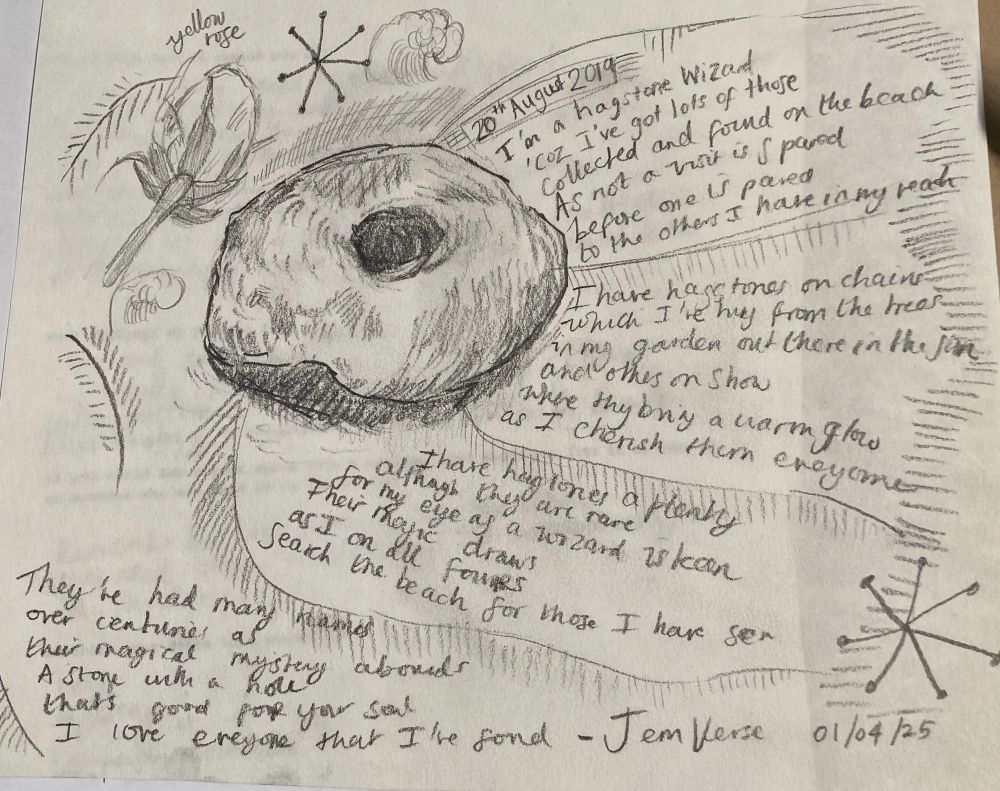 yellow
rose
20th August 2019
I'm a hagstone Wizard
'coz I've got lots of those
collected and found on the beach
As not a visit is spared
before one is pared
to the others I have in my reach
I have hagstones on chains
which I've hug from the trees
in my garden out there in the sun
and othes on show
where thy bring a warm glow
as I cherish them eneyome
I have hagtones a plenty
although they are rare
for my eye as a wizard is keen
Their magic draws
as I on all fours
search the beach for those I have sen
They've had many names
over centuries as
their magical mystery abounds
A stone with a hole
thats good for your soul
I love ereyone that I've fond - Jem Verse 01/04/25